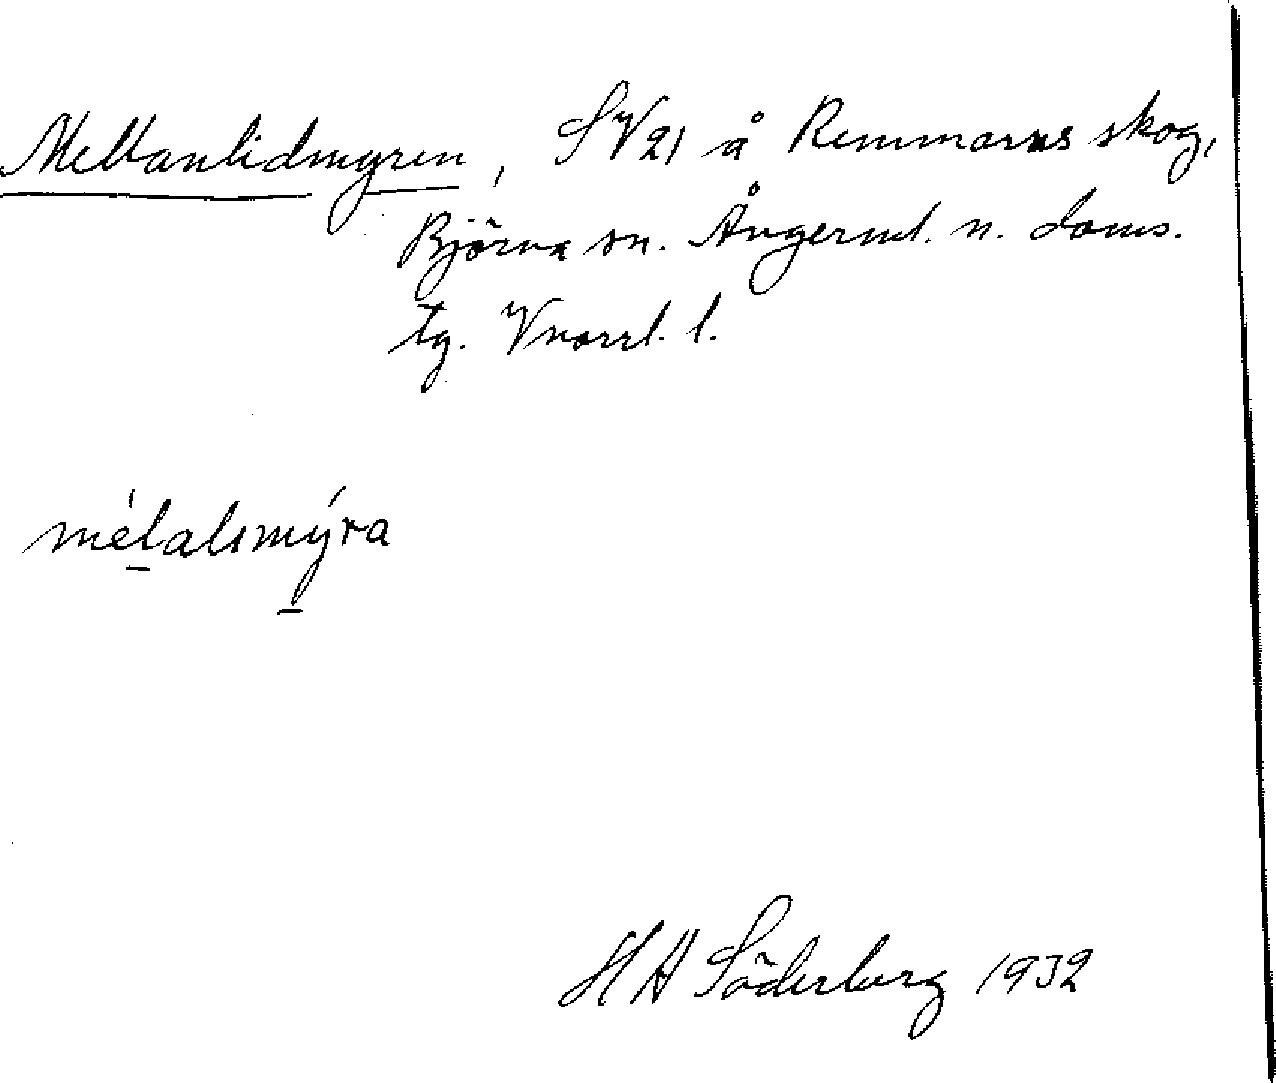 Mellanlidmyren, SV21 å Remmarns skog,
Björna sn. Ångerml. n. doms.
tg. Vnorrl. l.
mélalsmýra
HA Söderberg 1932